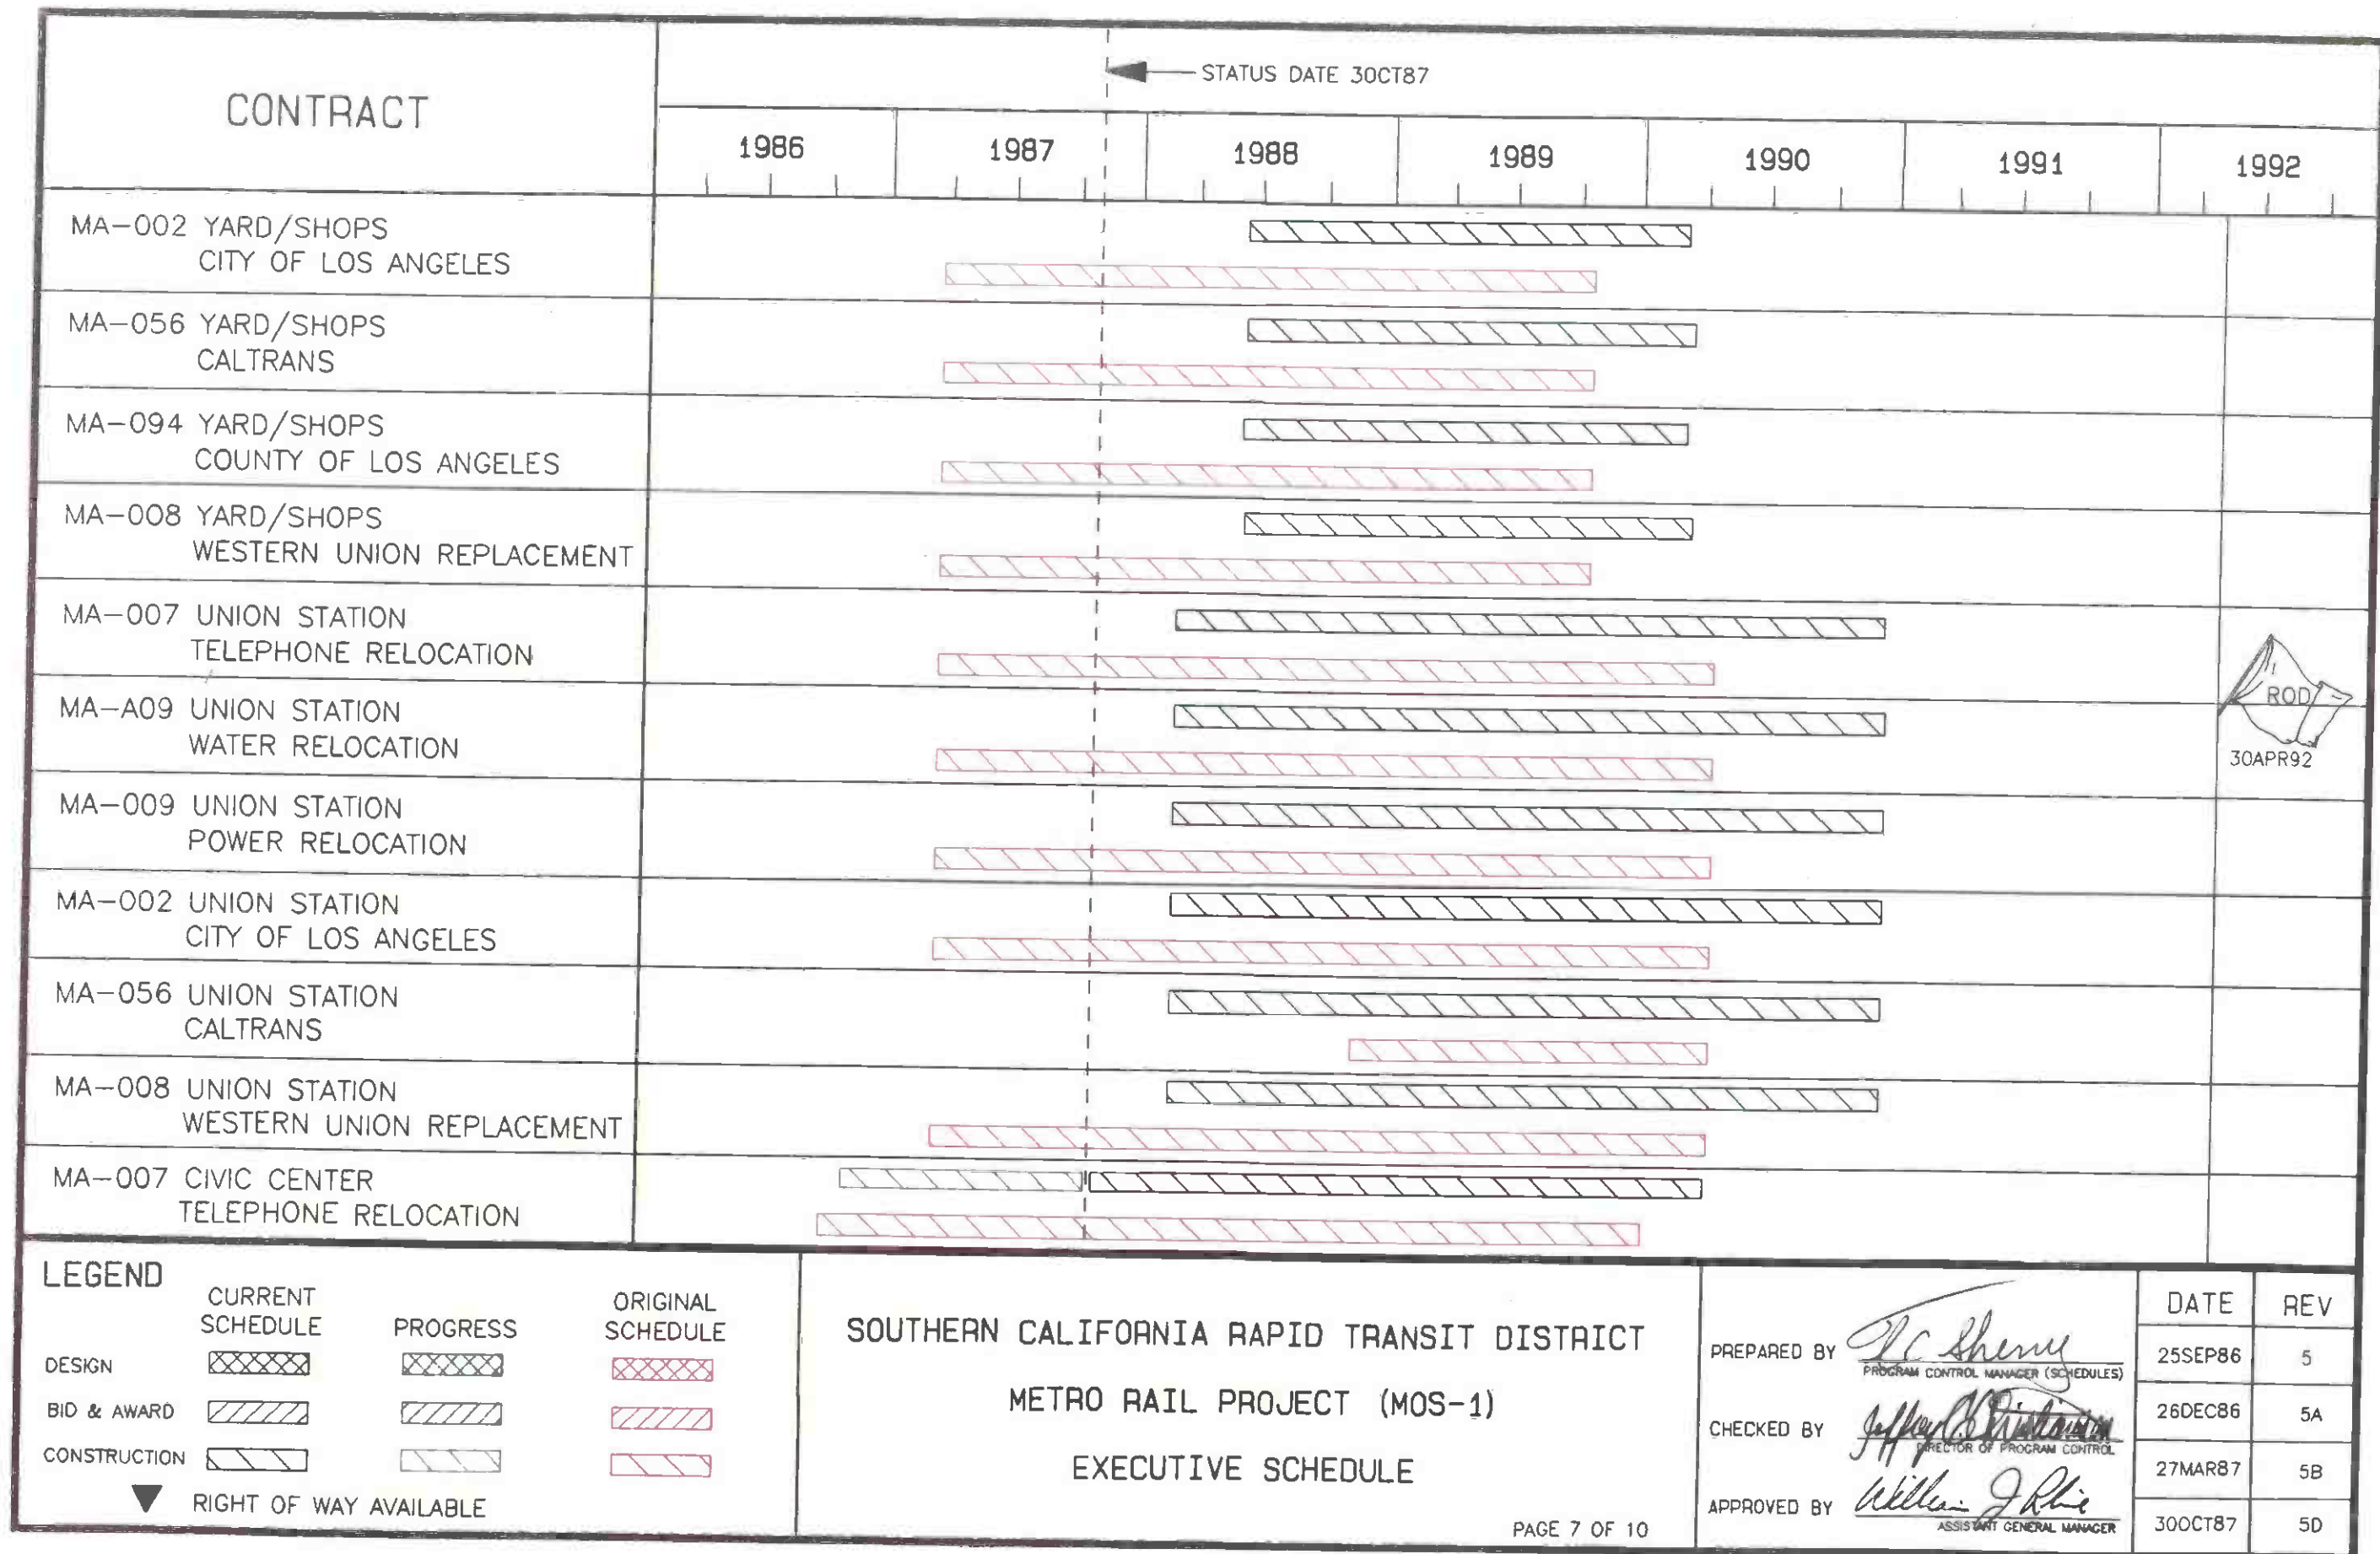 CONTRACT
STATUS DATE 30CT87
1986 1987 1988 1989 1990 1991 1992
MA-002 YARD/SHOPS
CITY OF LOS ANGELES
MA-056 YARD/SHOPS
CALTRANS
MA-094 YARD/SHOPS
COUNTY OF LOS ANGELES
MA-008 YARD/SHOPS
WESTERN UNION REPLACEMENT
MA-007 UNION STATION
TELEPHONE RELOCATION
MA-A09 UNION STATION
WATER RELOCATION
ROD
30APR92
MA-009 UNION STATION
POWER RELOCATION
MA-002 UNION STATION
CITY OF LOS ANGELES
MA-056 UNION STATION
CALTRANS
MA-008 UNION STATION
WESTERN UNION REPLACEMENT
MA-007 CIVIC CENTER
TELEPHONE RELOCATION
LEGEND
CURRENT SCHEDULE
PROGRESS
ORIGINAL SCHEDULE
DESIGN
BID & AWARD
CONSTRUCTION
RIGHT OF WAY AVAILABLE
SOUTHERN CALIFORNIA RAPID TRANSIT DISTRICT
METRO RAIL PROJECT (MOS-1)
EXECUTIVE SCHEDULE
PAGE 7 OF 10
PREPARED BY
PROGRAM CONTROL MANAGER (SCHEDULES)
CHECKED BY Jeffrey
DIRECTOR OF PROGRAM CONTROL
APPROVED BY William J
ASSISTANT GENERAL MANAGER
DATE REV
25SEP86 5
26DEC86 5A
27MAR87 5B
30OCT87 5D